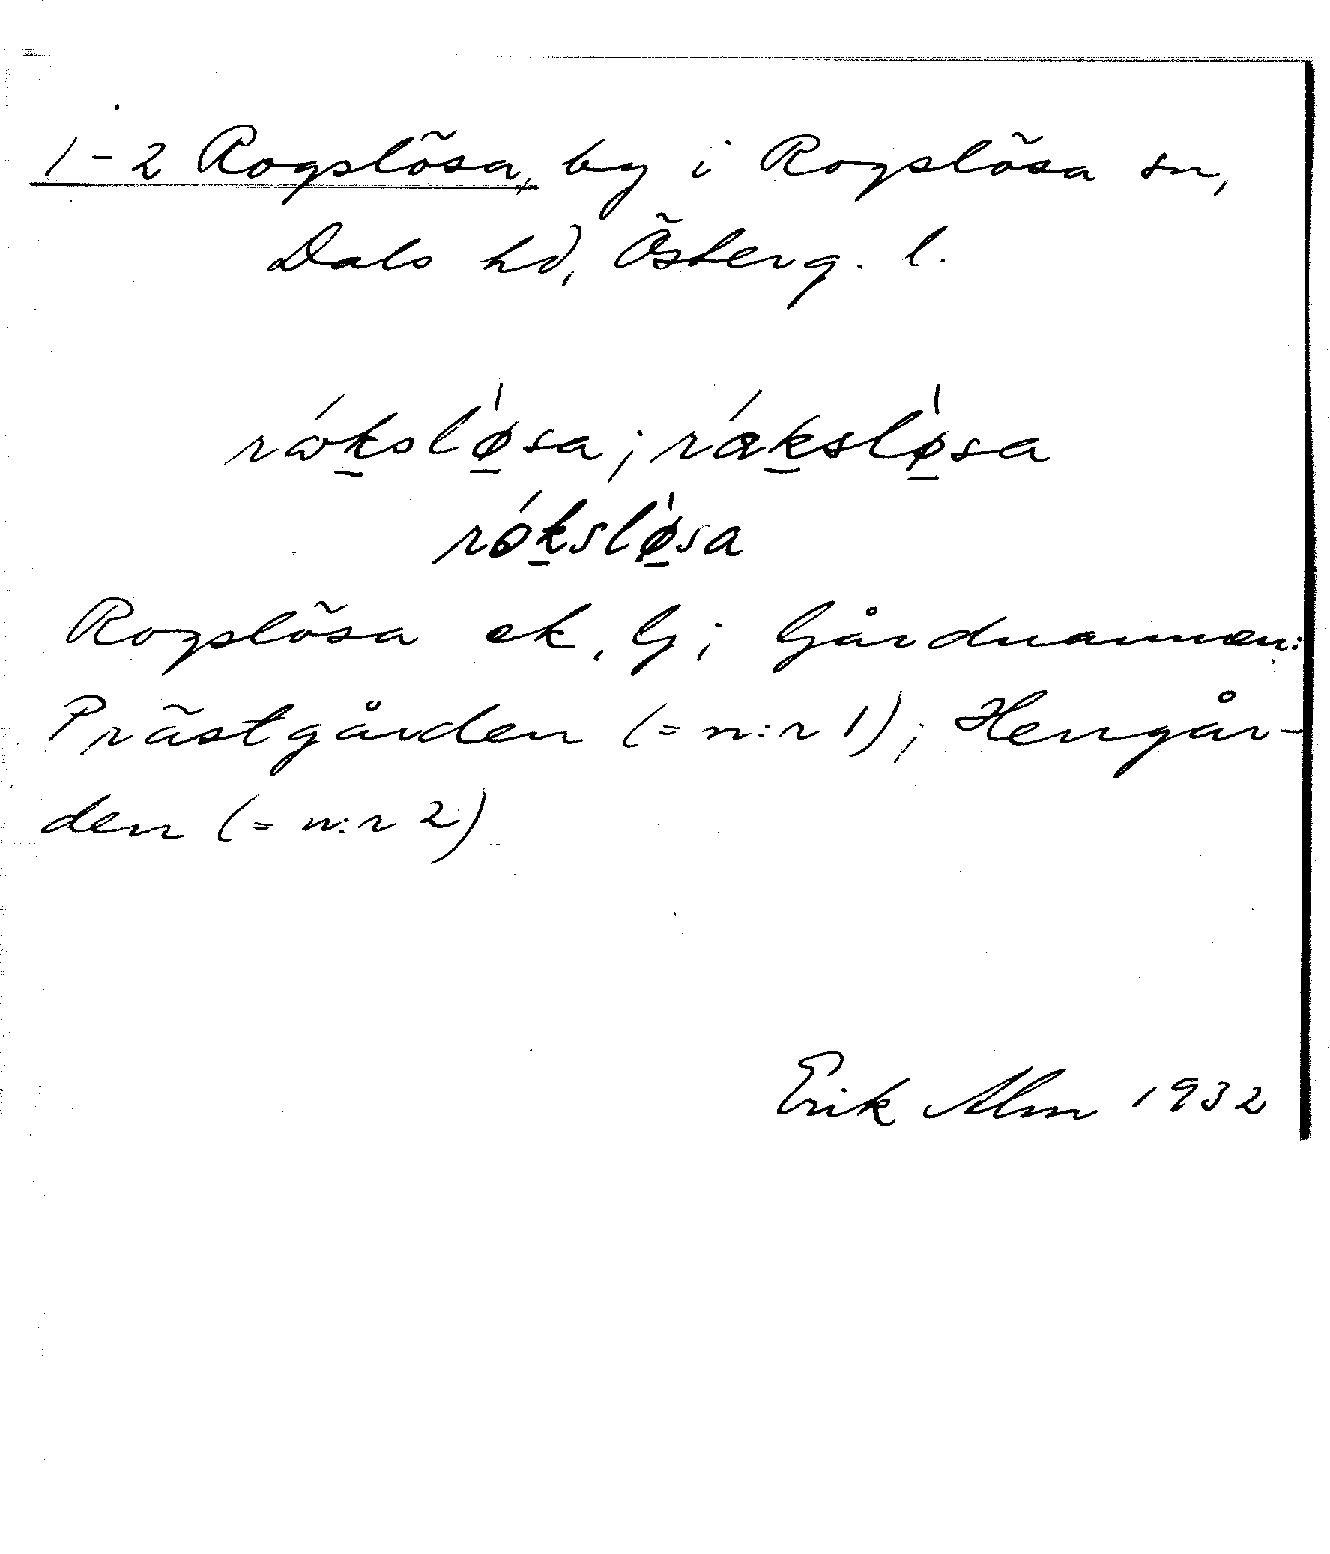 1-2 Rogslösa, by i Rogslösa sn,
Dals hd, Österg. l.
rókslø̀sa; råkslø̀sa
rókslø̀sa
Rogslösa ek, Gj; Gårdnamnen:
Prästgården (= n:r 1); Herrgår-
den (= n:r 2)
Erik Alm 1932